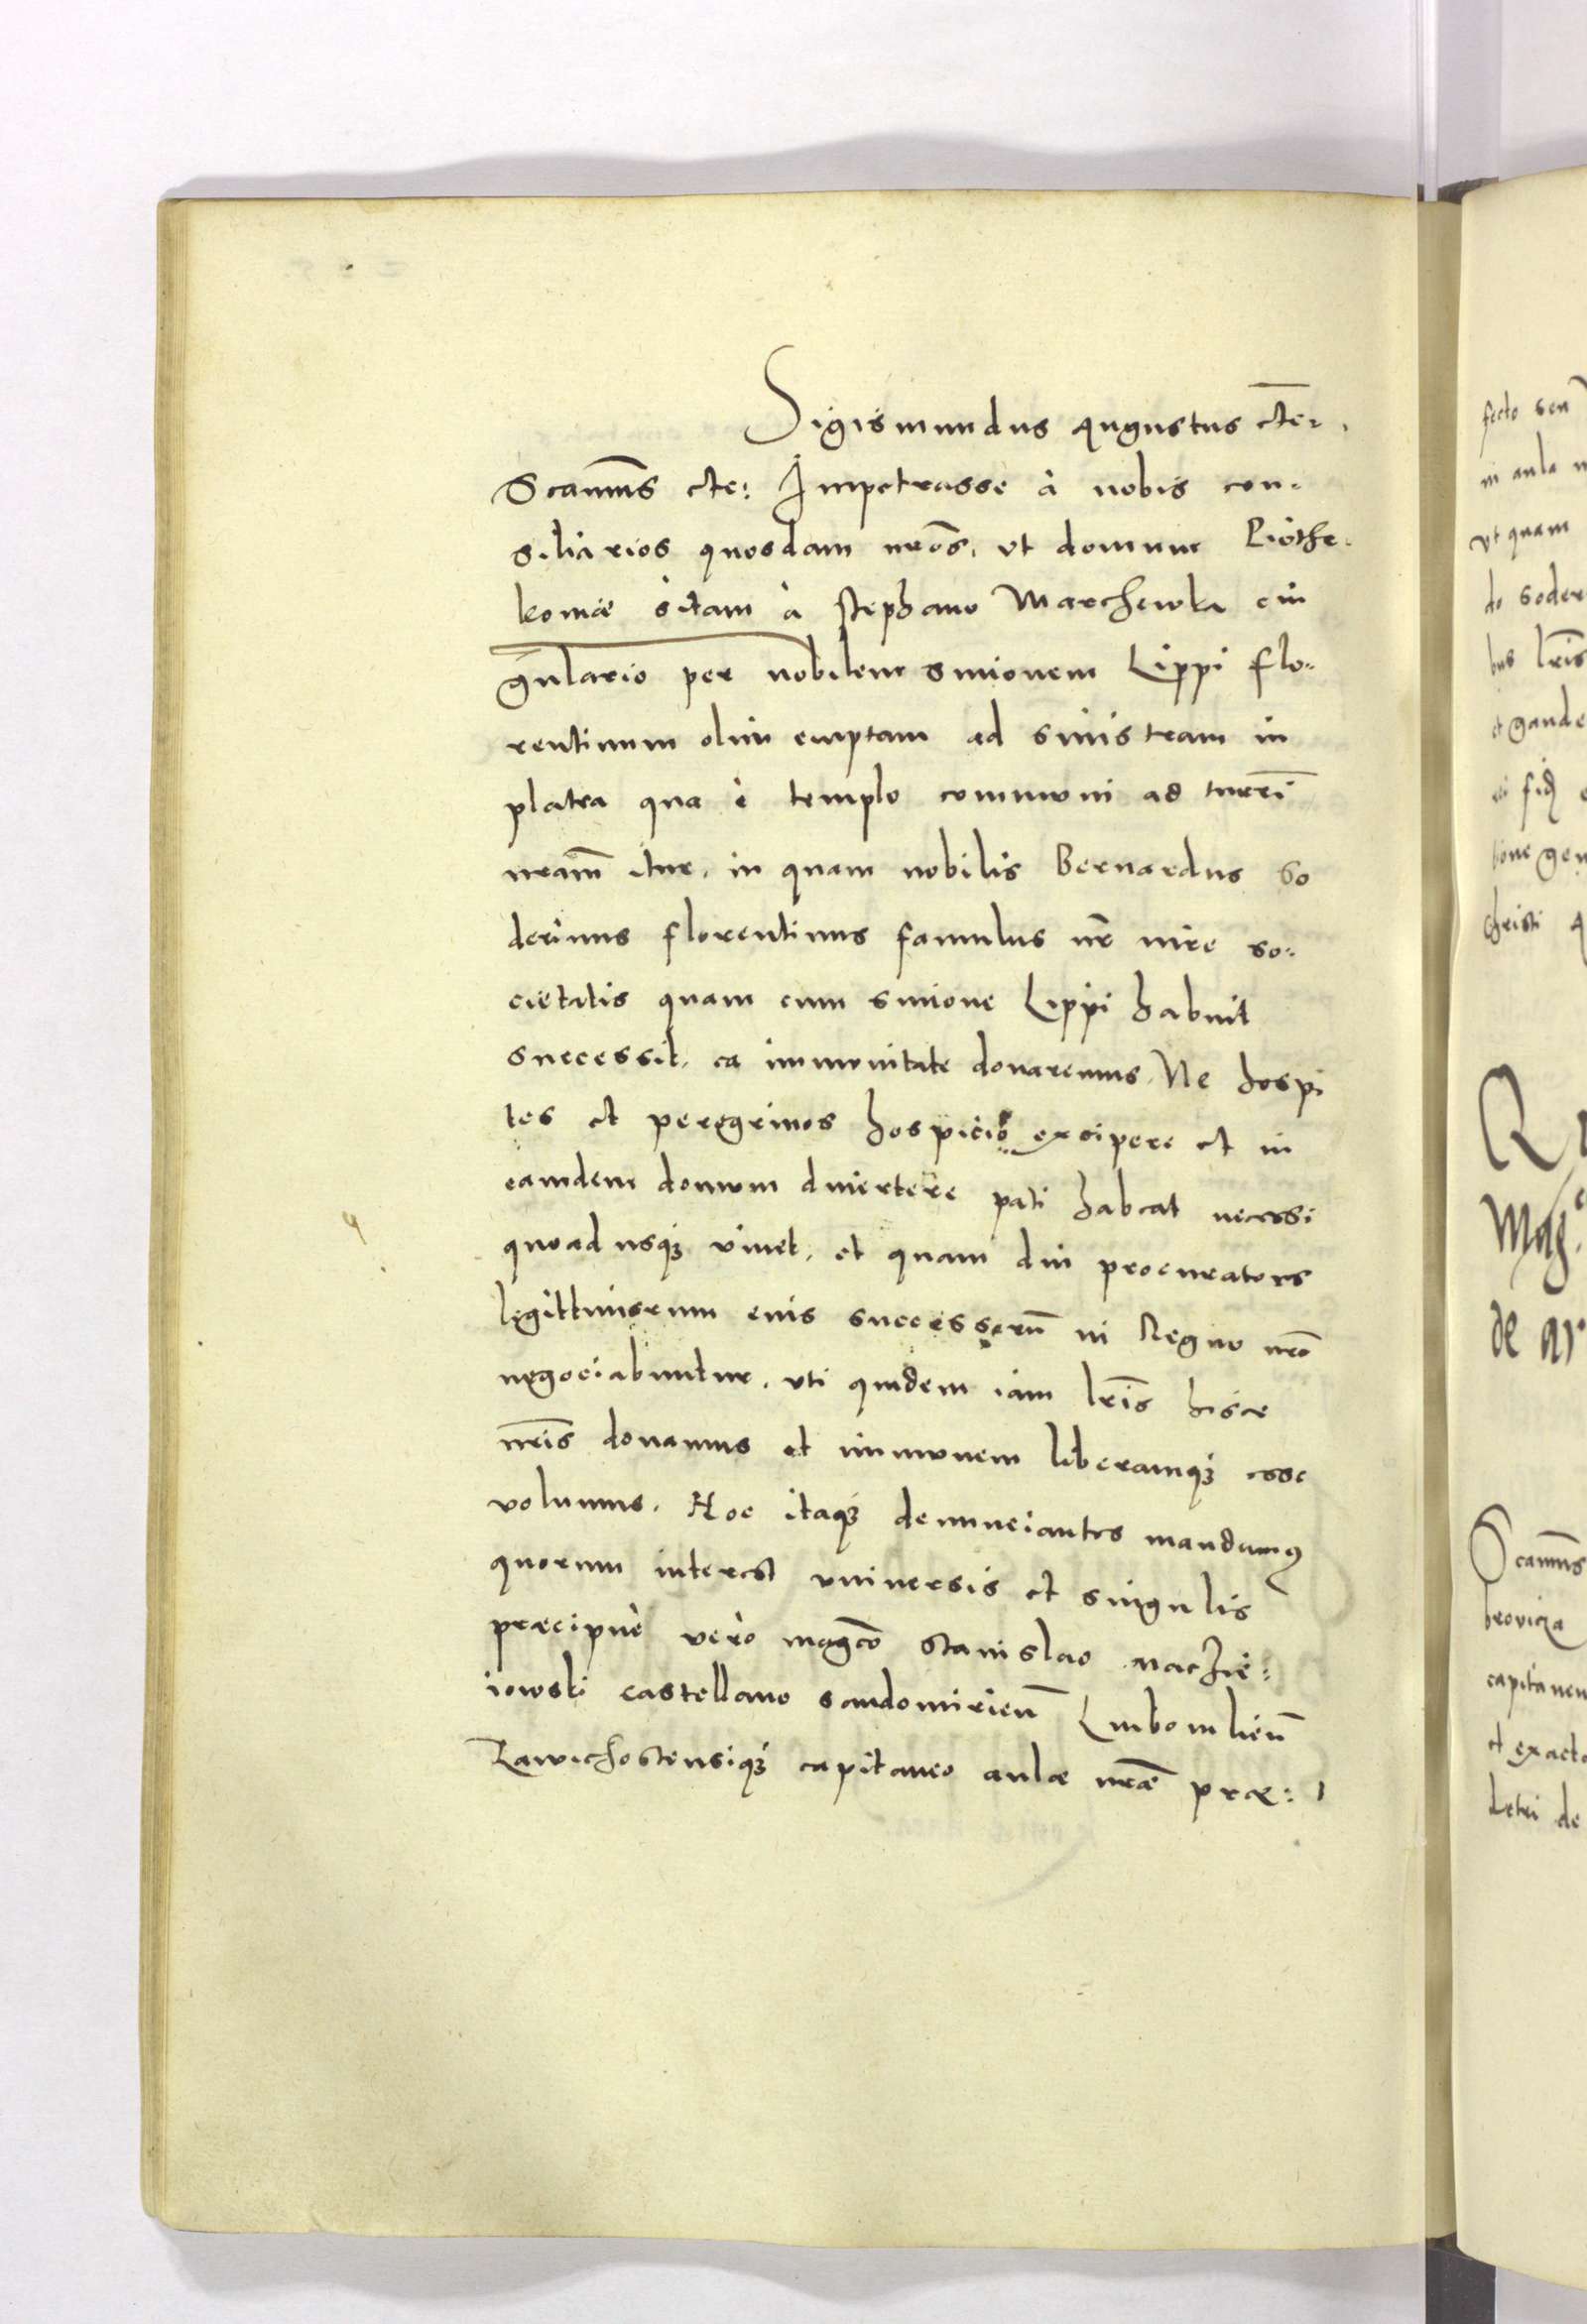 Sigismundus Augustus etc:.
Scamus etc: Impetrasse à nobis con-
siliarios quosdam nros, ut domum Piothr-
komiae sitam à stephano Marchewka cin
gulario per nobilem simonem Lippi flo-
rentinum olim emptam ad sinistram in
platea qua è templo communi ad turri
nram itur, in quam nobilis Bernardus So
derinus florentinus famulus nr iure so-
cietatis quam cum simone Lippi habuit
successit, ea immunitate donaremus, Ne hospi
tes et peregrinos hospicio excipere et in
eamdem domum divertere pati habeat necessi
quoad usq3 vivet, et quam diu procuratores
legittimorum eius successorū in Regno nro
negociabuntur, uti quidem iam lris hisce
nris donamus et immunem liberamq3 esse
volumus. Hoc itaq3 denunciantes mandamus
quorum interest universis et singulis
praecipuè verò magco Stanislao Maczie:
iowski castellano sandomirien Lubomlien
Zawichostensiq3 capitaneo aulae nrae prae:
fecto seu
in aula
ut quam
do soder
bus lris
et gaude
christi
Mag.
Scamus
capitaneu
et exacto